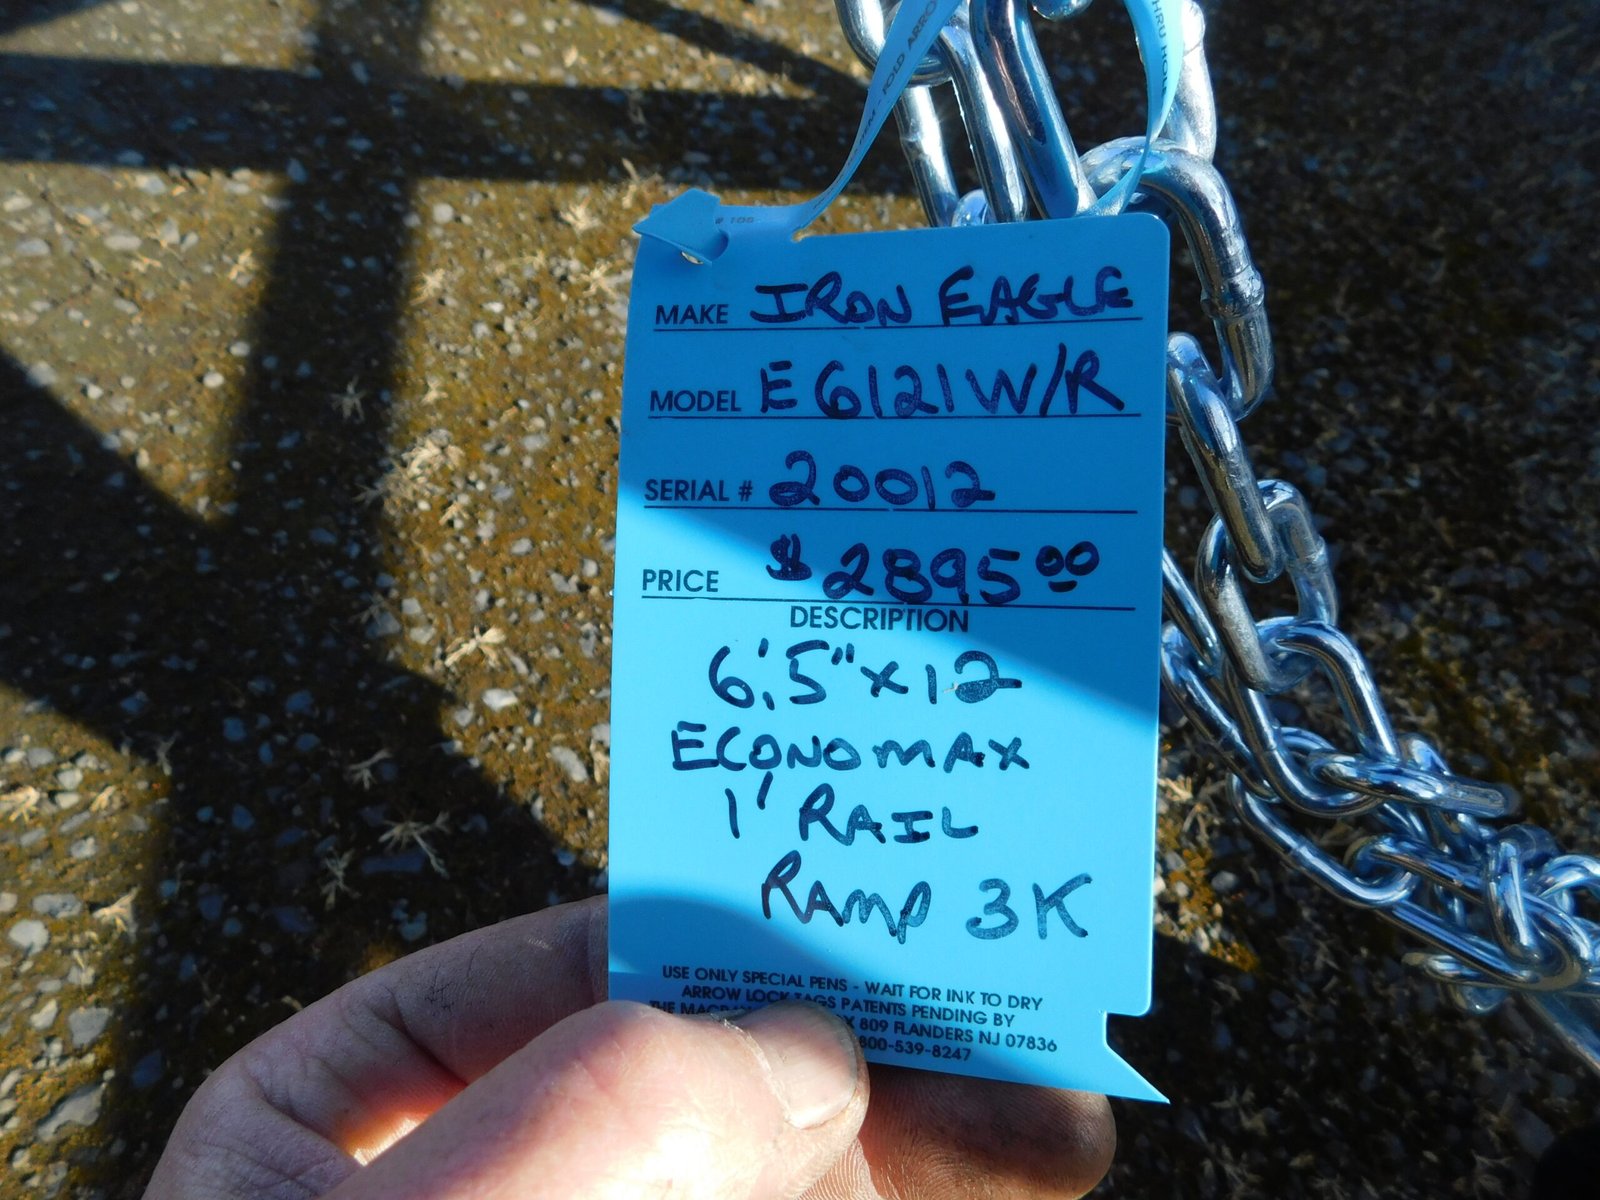 FOLD ARRO
THRU HO
# 105
MAKE IRON EAGLE
MODEL E6121W/R
SERIAL # 20012
PRICE $2895.00
DESCRIPTION
6',5" x 12
ECONOMAX
1' RAIL
RAMP 3K
USE ONLY SPECIAL PENS - WAIT FOR INK TO DRY
ARROW LOCK TAGS PATENTS PENDING BY
THE X 809 FLANDERS NJ 07836
800-539-8247